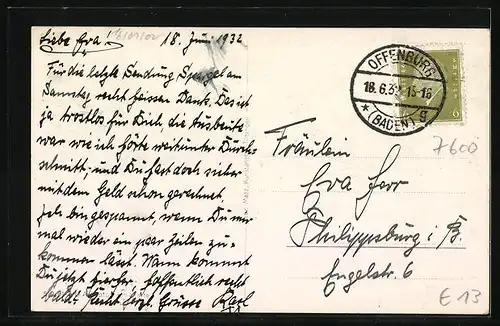 Liebe Eva! 18. Juni 1932
Für die letzte Sendung Spargel am
Samstag recht heissen Dank. Das ist
ja trostlos für Dich, die Ausbeute
war wie ich hörte weit unter Durch-
schnitt, und Du hast doch sicher
mit dem Geld schon gerechnet.
Ich bin gespannt, wann Du mir
mal wieder ein paar Zeilen zu-
kommen lässt. Wann kommst
Du jetzt hierher, hoffentlich recht
bald! Recht herzl. Grüsse Karl
OFFENBURG
18.6.32 15-16
★ (BADEN) g
6
7600
Fräulein
Eva
Philippsburg i/B.
Engelstr. 6
E 13